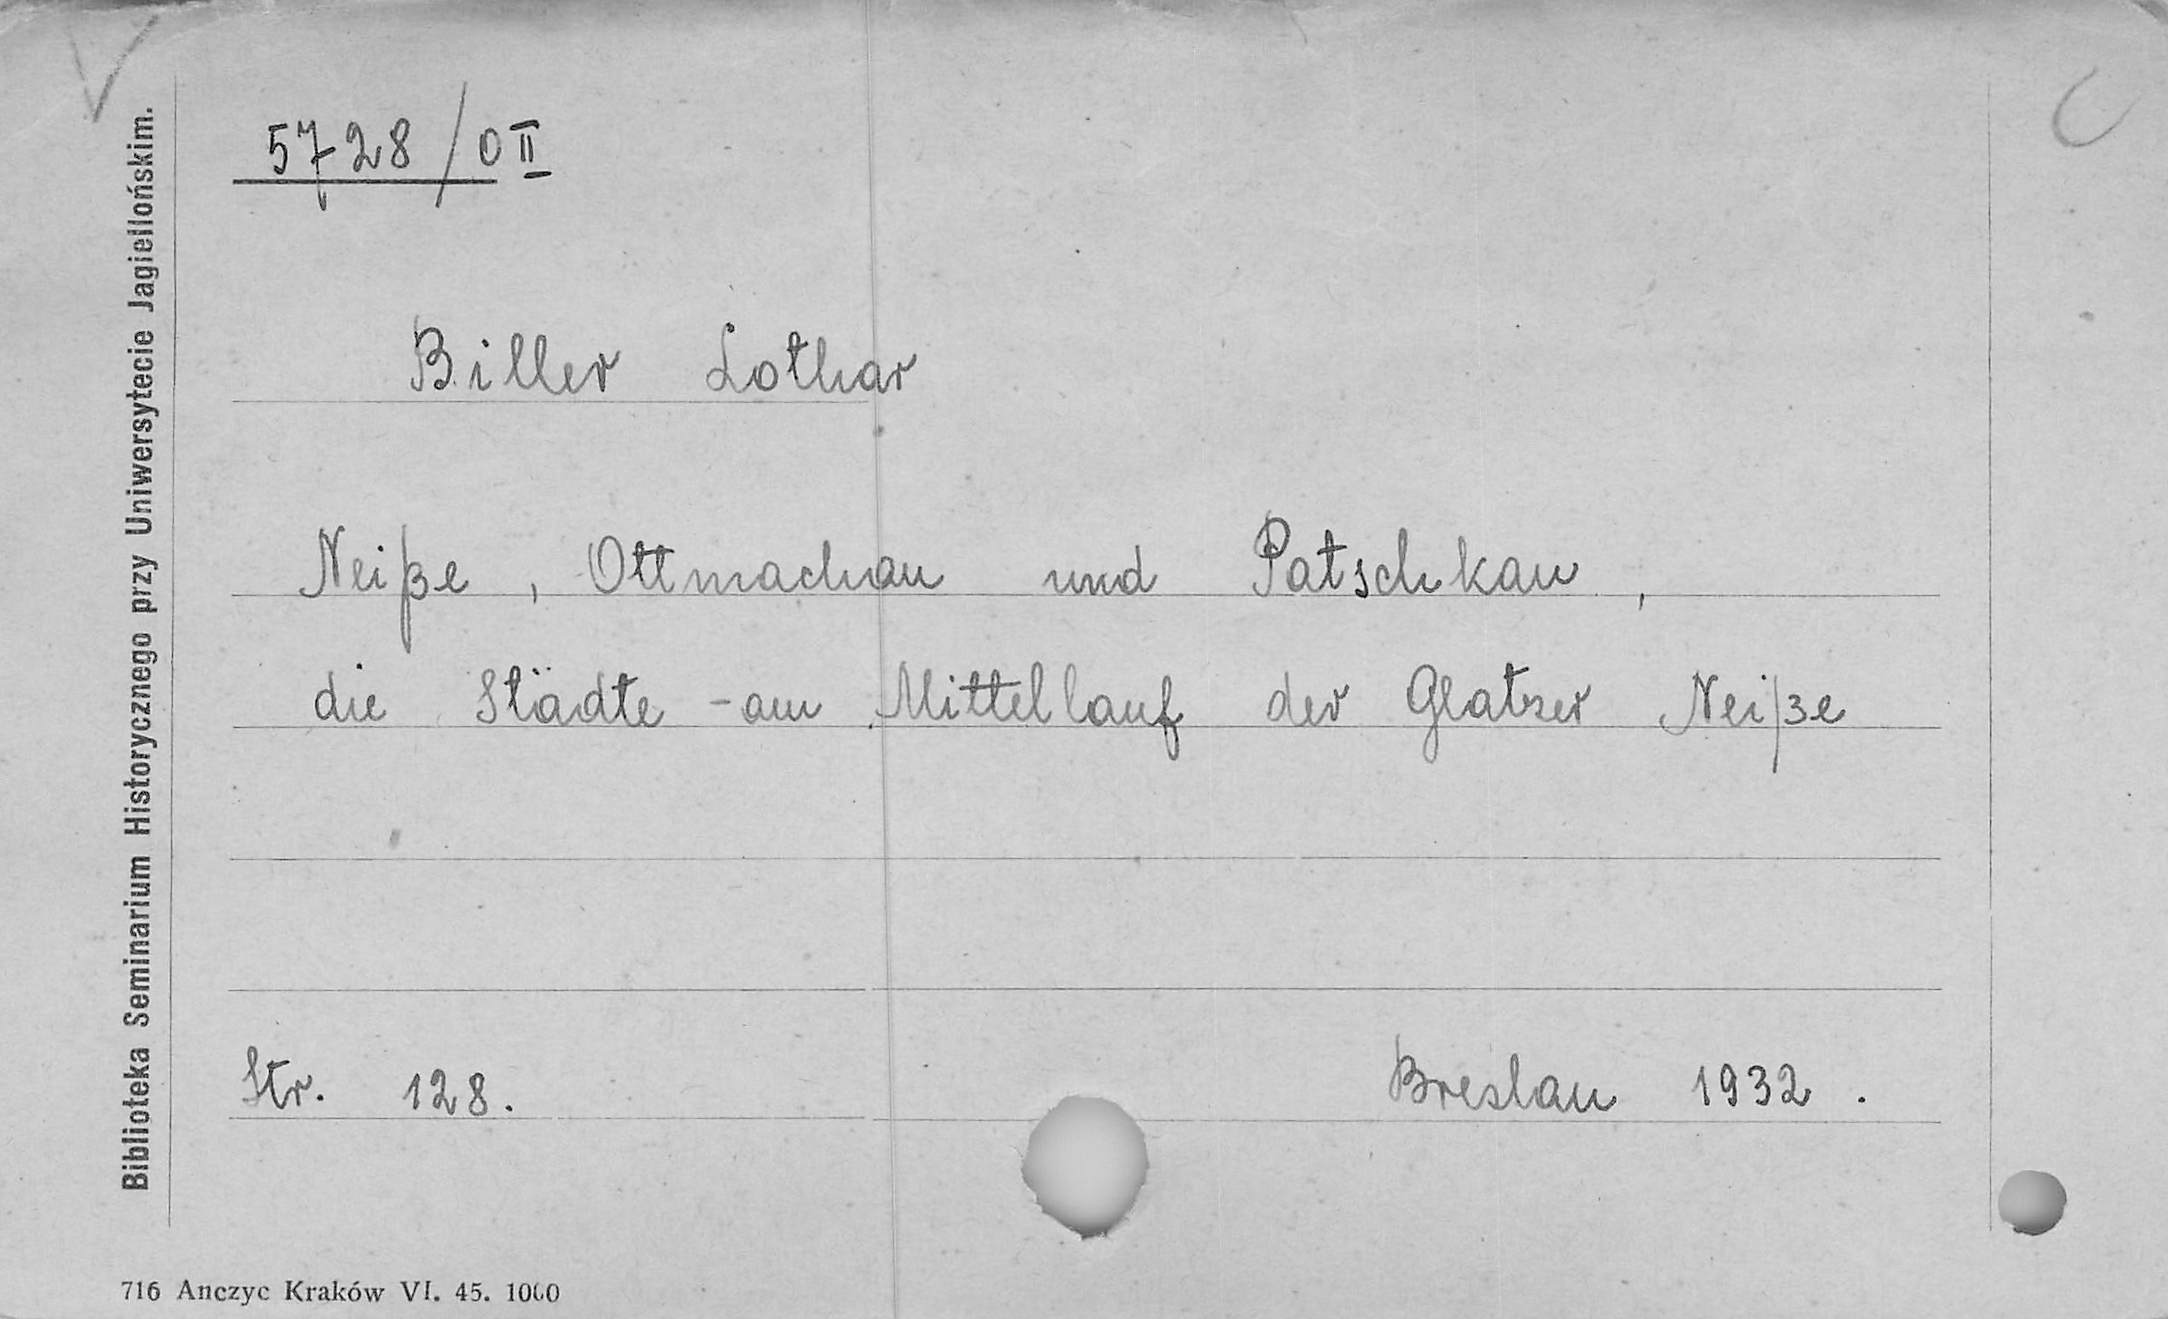 5728/0 II
Biller Lothar
Neiße, Ottmachau und Patschkau,
die Städte - am Mittellauf der Glatzer Neiße
Str. 128.
Breslau 1932.
Biblioteka Seminarium Historycznego przy Uniwersytecie Jagiellońskim.
716 Anczyc Kraków VI. 45. 1000